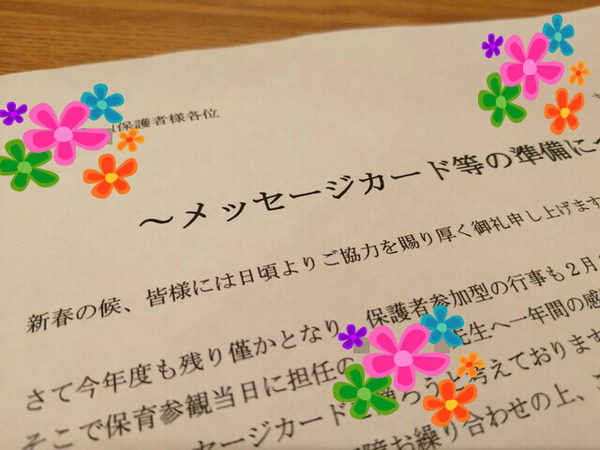 保護者様各位
～メッセージカード等の準備に
新春の候、皆様には日頃よりご協力を賜り厚く御礼申し上げます
さて今年度も残り僅かとなり、保護者参加型の行事も2月
そこで保育参観当日に担任の 先生へ一年間の感
セージカード ろうと考えております
お繰り合わせの上、